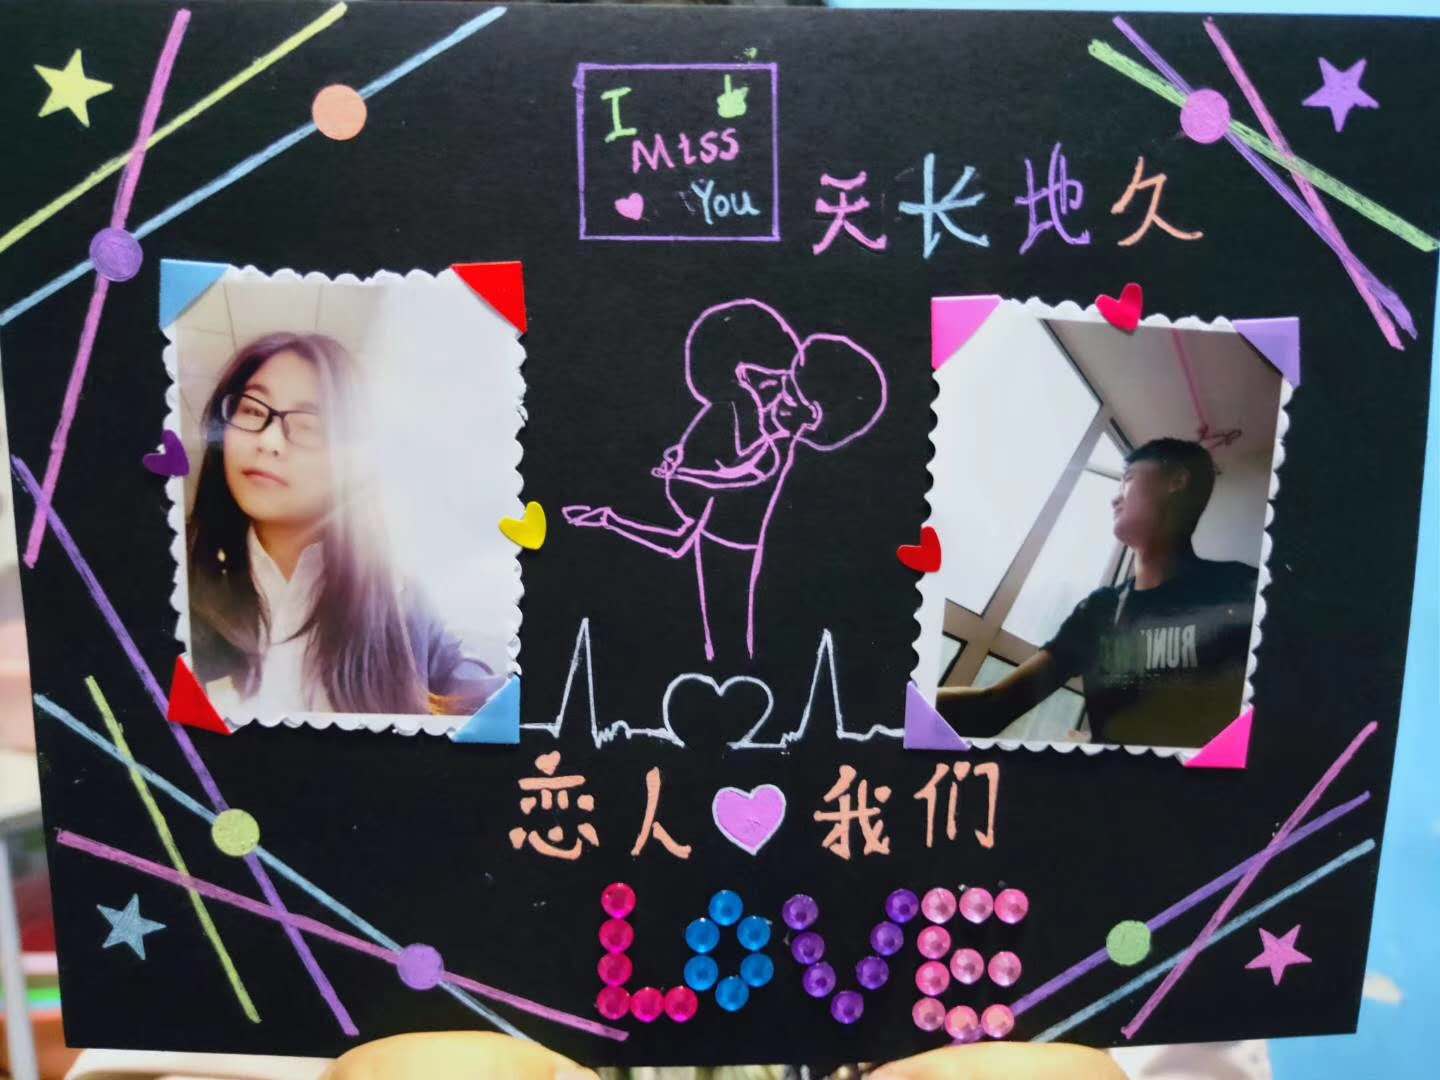 I
Miss
You
天长地久
恋人我们
LOVE